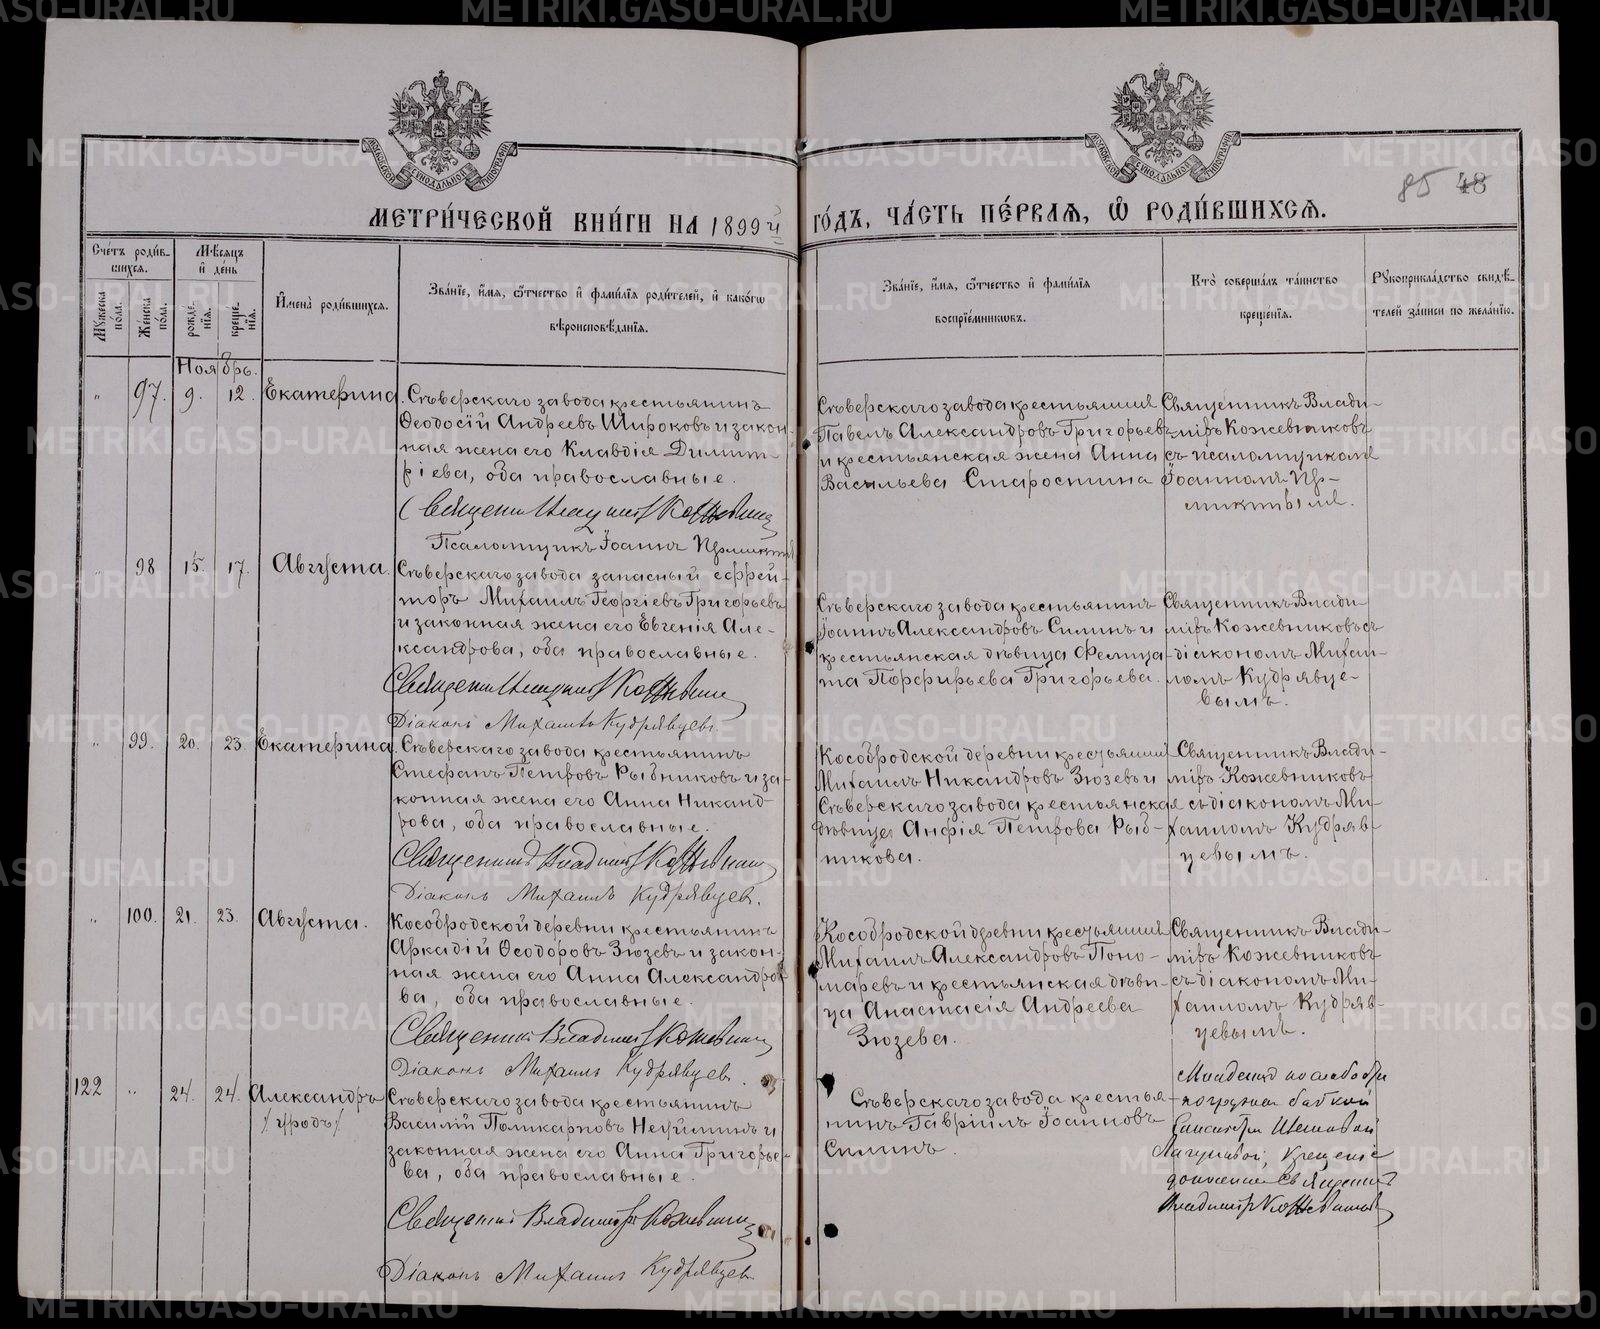 МЕТРИ́ЧЕСКОЙ КНИ́ГИ НА 1899й
ГО́ДЪ, ЧА́СТЬ ПЕ́РВАЯ, Ѡ҆ РОДИ́ВШИХСЯ.
85 48
Сче́тъ роди́в-
шихся.
Му́жеска
по́ла.
Же́нска
по́ла.
Мѣ́сяцъ
и҆ де́нь
рожде́-
нїя.
креще́-
нїя.
И҆мена̀ роди́вшихся.
Зва́нїе, и҆́мя, ѻ҆́тчество и҆ фами́лїя роди́телей, и҆ како́гѡ
вѣроисповѣ́данїя.
Зва́нїе, и҆́мя, ѻ҆́тчество и҆ фами́лїя
воспрїе́мникѡвъ.
Кто̀ соверша́лъ та́инство
креще́нїя.
Рꙋкоприкла́дство свидѣ́-
телей за́писи по жела́нїю.
Ноябрь.
" 97. 9. 12. Екатерина.
Сѣверскаго завода крестьянинъ
Ѳеодосій Андреевъ Широковъ и закон-
ная жена его Клавдія Димит-
ріева, оба православные.
Псаломщикъ Іоаннъ
Сѣверскаго завода крестьянинъ
Павелъ Александровъ Григорьевъ
и крестьянская жена Анна
Васильева Старостина
Священникъ Влади-
міръ Кожевниковъ
съ псаломщикомъ
Іоанномъ
" 98 15. 17. Августа.
Сѣверскаго завода запасный ефрей-
торъ Михаилъ Георгіевъ Григорьевъ
и законная жена его Евгенія Але-
ксандрова, оба православные.
Діаконъ Михаилъ Кудрявцевъ.
Сѣверскаго завода крестьянинъ
Іоаннъ Александровъ Силинъ и
крестьянская дѣвица Фелица-
та Порфирьева Григорьева.
Священникъ Влади-
міръ Кожевниковъ съ
діакономъ Михаи-
ломъ Кудрявце-
вымъ.
" 99. 20. 23. Екатерина
Сѣверскаго завода крестьянинъ
Стефанъ Петровъ Рыбниковъ и за-
конная жена его Анна Никанд-
рова, оба православные.
Священникъ Владиміръ Кожевниковъ
Діаконъ Михаилъ Кудрявцевъ.
Кособродской деревни крестьянинъ
Михаилъ Никандровъ Зюзевъ и
Сѣверскаго завода крестьянская
дѣвица Анфія Петрова Рыб-
никова.
Священникъ Влади-
міръ Кожевниковъ
съ діакономъ Ми-
хаиломъ Кудряв-
цевымъ.
" 100. 21. 23. Августа.
Кособродской деревни крестьянинъ
Аркадій Ѳеодоровъ Зюзевъ и закон-
ная жена его Анна Александро-
ва, оба православные.
Священникъ Владиміръ Кожевниковъ
Діаконъ Михаилъ Кудрявцевъ.
Кособродской деревни крестьянинъ
Михаилъ Александровъ Поно-
маревъ и крестьянская дѣви-
ца Анастасія Андреева
Зюзева.
Священникъ Влади-
міръ Кожевниковъ
съ діакономъ Ми-
хаиломъ Кудряв-
цевымъ.
122 " 24. 24. Александръ
/уродъ/
Сѣверскаго завода крестьянинъ
Василій Поликарповъ и
законная жена его Анна Григорье-
ва, оба православные.
Священникъ Владиміръ Кожевниковъ
Діаконъ Михаилъ Кудрявцевъ
Сѣверскаго завода крестья-
нинъ Гавріилъ Іоанновъ
Силинъ.
Младенецъ по слабости
погруженъ бабкой
крещеніе
Священникъ
Владиміръ Кожевниковъ